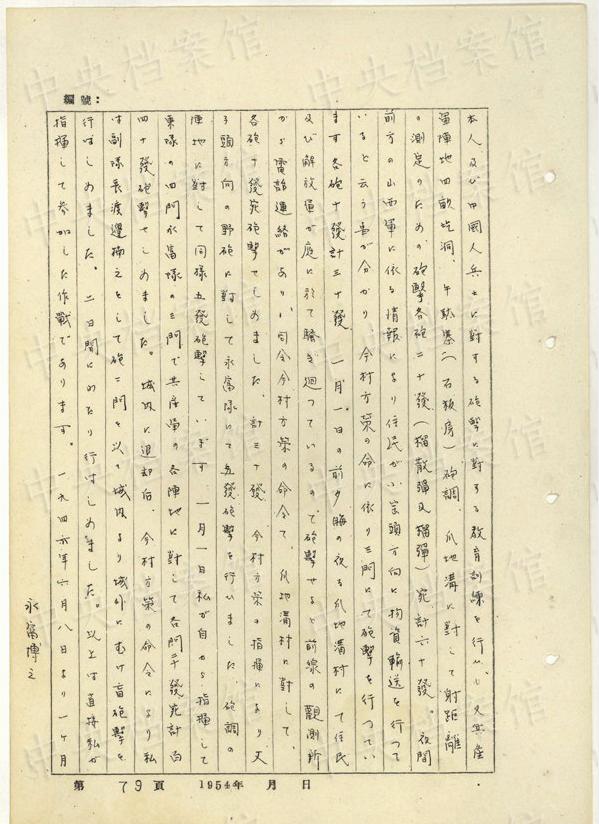 編號：
本人及び中國人兵士に対する砲撃に対する教育訓練を行いし 又共産
軍陣地四畝圪洞、牛駄寨（石板房）砲調、爪地溝に対して射距離
の測定のための砲撃各砲二十發（榴散弾及榴弾）宛計六十發。夜間
前方の山西軍に依る情報により住民が小京頭方向に物資輸送を行つて
いると云う事が分かり、今村方策の命に依り三門にて砲撃を行つてい
ます各砲十發計三十發、一月一日の前夕晦の夜る爪地溝村にて住民
及び解放軍が庭に於て騒ぎ廻つているので砲撃せよと前線の觀測所
から電話連絡があり、司令今村方策の命令で、爪地溝村に対して、
各砲十發宛砲撃てしめました、計三十發 今村方策の指揮により丈
子頭方向の野砲に対して永富隊にて五發砲撃を行いました、砲調の
陣地に対して同様五發砲撃しています 一月一日私が自から指揮して
東隊の四門永富隊の三門で共産軍の各陣地に対して各門二十發宛計百
四十發砲撃せしめました。城内に退却后、今村方策の命令により私
は副隊長渡邊揃之をして砲二門を以て城内より城外にむけ盲砲撃を
行はしめました。二日間にわたり行はしめました。以上は直接私が
指揮して参加した作戰であります。一九四六年六月八日より一ケ月
永富博之
第 79 頁 1954年 月 日
中央档案馆